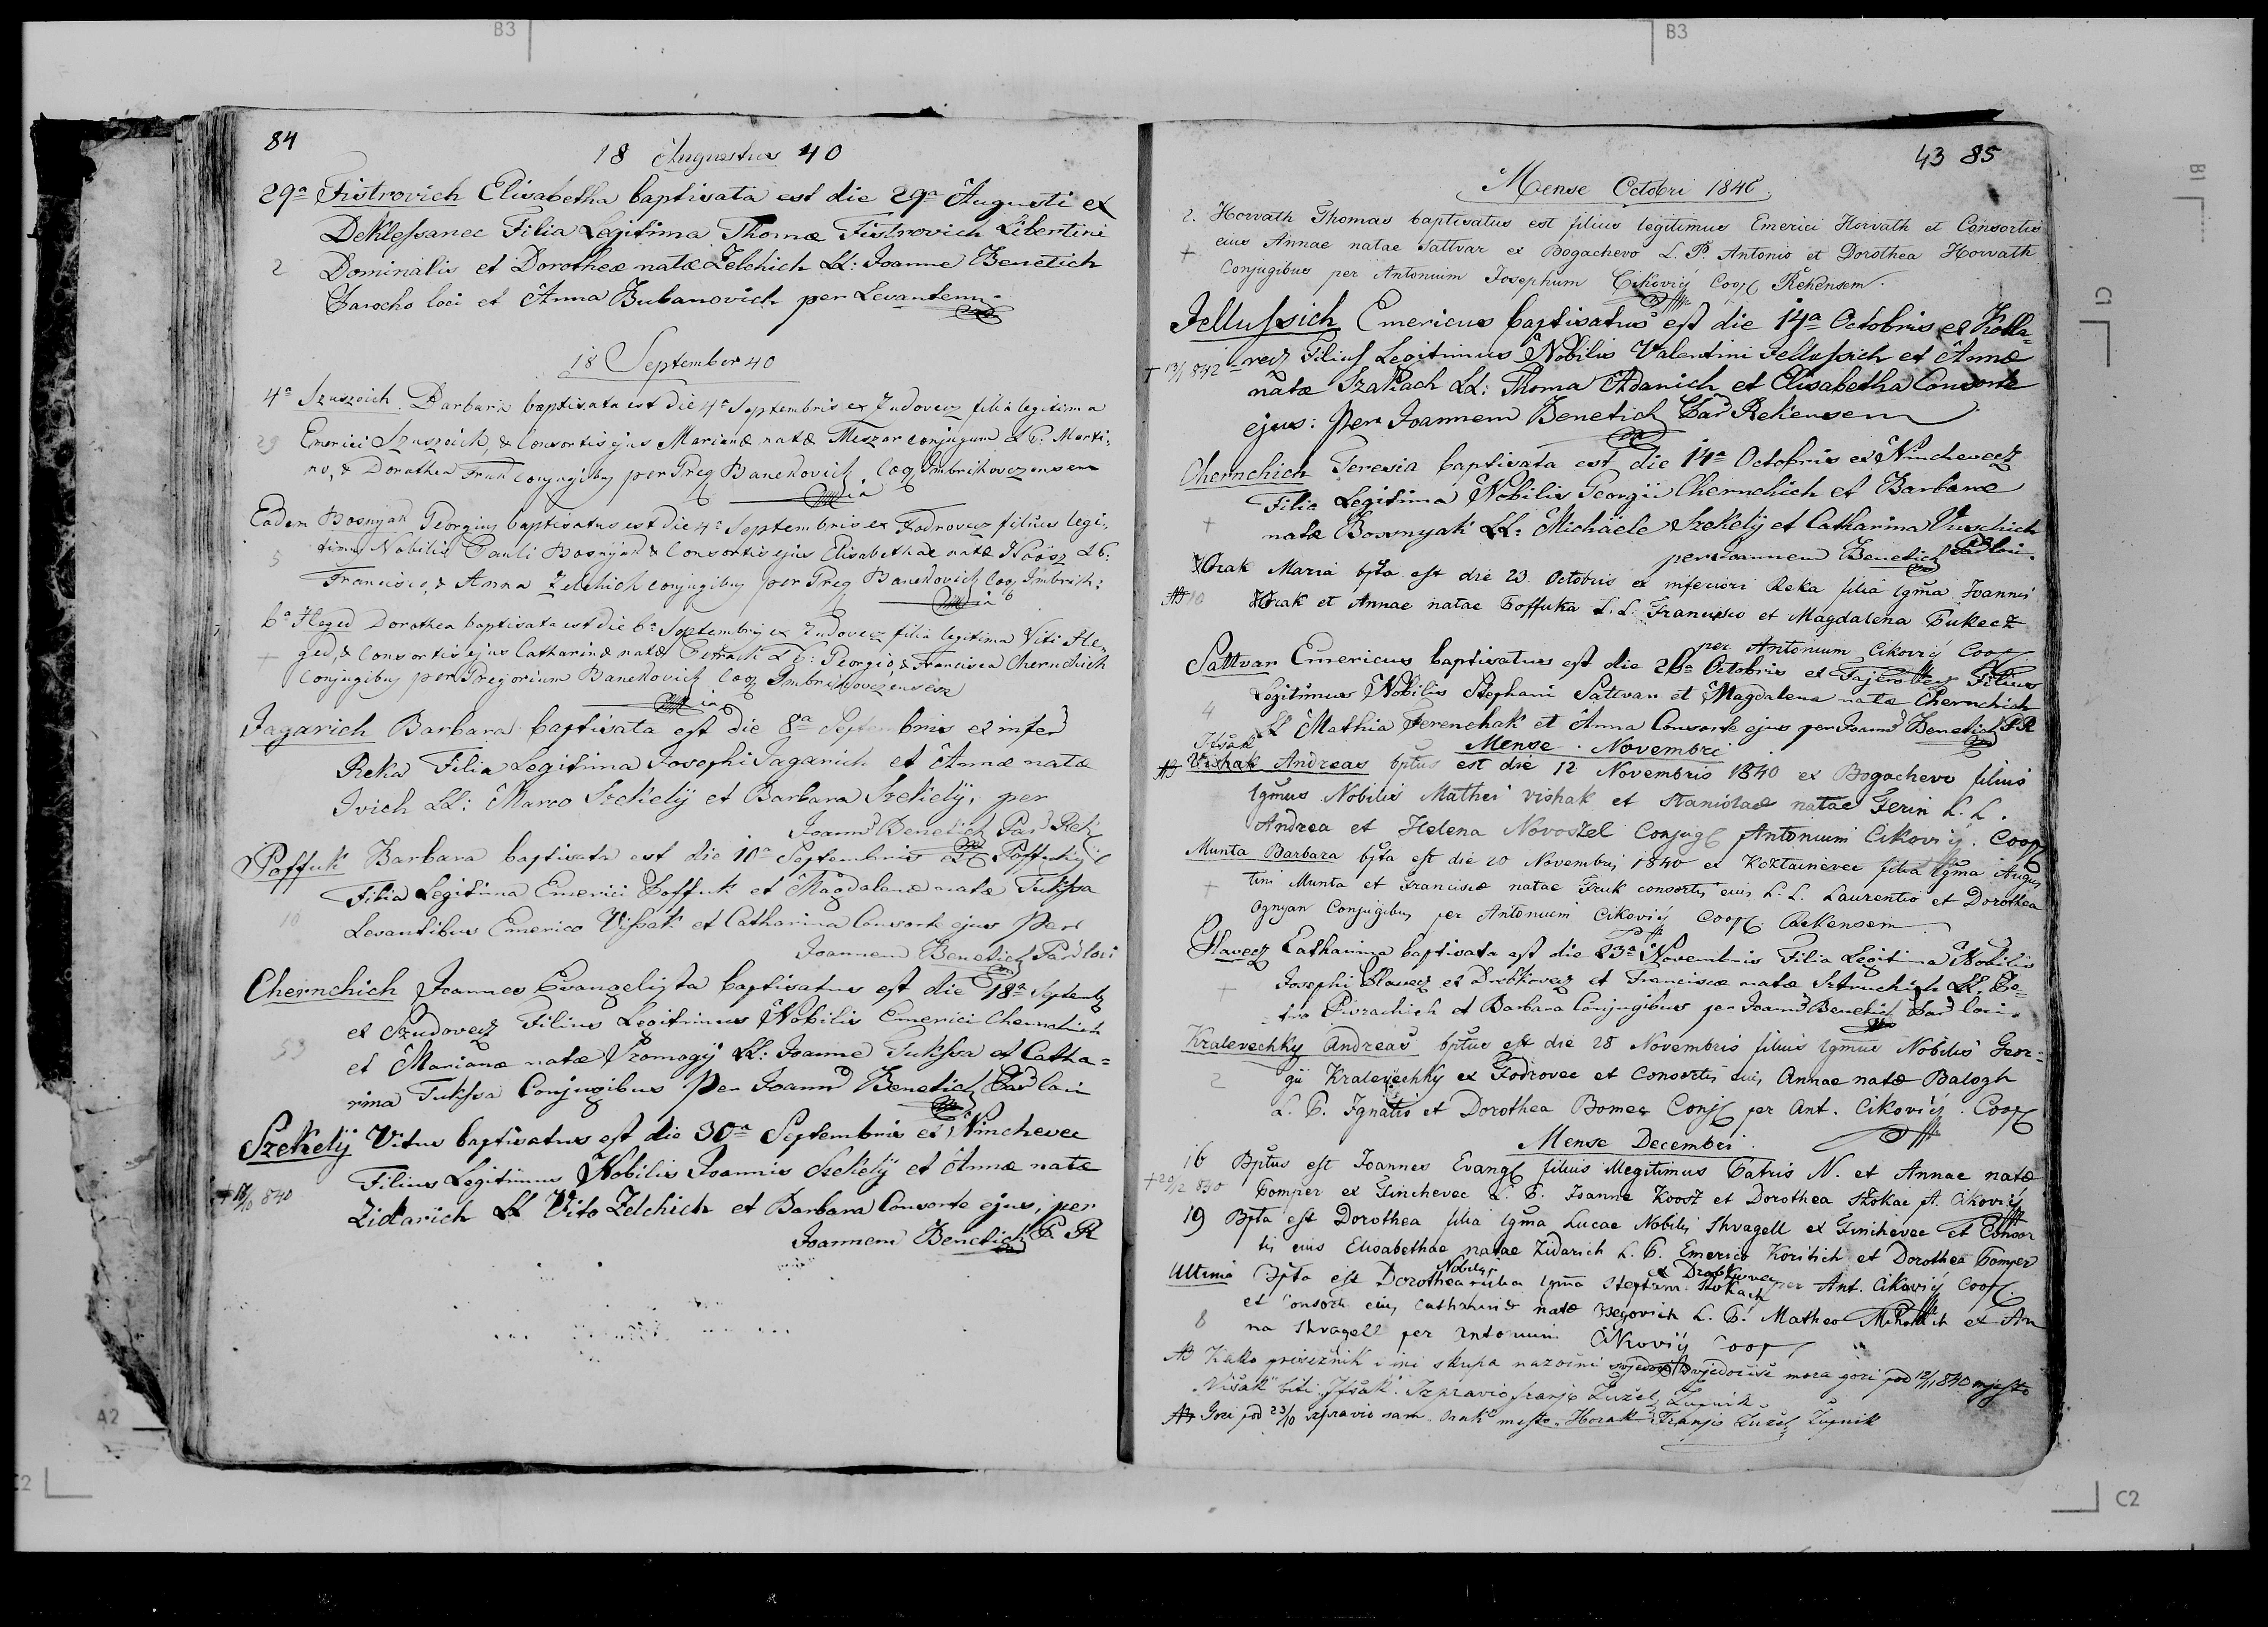 B3
B3
84
18 Augustus 40
29a Fistrovich Elisabetha baptisata est die 29a Augusti ex
Deklessanec Filia Legitima Thomæ Fistrovich Libertini
2 Dominalis et Dorotheæ natæ Zelchich LL: Joanne Benetich
Parocho loci et Anna Bubanovich per Levantem
18 September 40
4a Szuszoich Barbara baptisata est die 4a Septembris ex Zudovecz filia legitima
29 Emerici Szuszoich, & Consortis ejus Marianæ natæ Meszar conjugum L P: Marti-
no, & Dorothea Fruk conjugibus per Greg Banekovich Coop Imbrihovczensem
Eadem Bosnyak Georgius baptisatus est die 4a Septembris ex Fodrovecz filius legi-
5 timus Nobilis Pauli Bosnyak & Consortis ejus Elisabethæ natæ Koősz L P:
Francisco, & Anna Zelchich conjugibus per Greg Banekovich Coop Imbrih:
6a Heged Dorothea baptisata est die 6a Septembris ex Zudovecz filia legitima Viti He-
+ ged, & Consortis ejus Catharinæ natæ Petrach L P: Georgio & Francisca Chernchich
Conjugibus per Gregorium Banekovich Coop Imbrihovczensem
Jagarich Barbara baptisata est die 8a Septembris ex infer
Reka Filia Legitima Josephi Jagarich et Annæ natæ
Ivich LL: Marco Szekelÿ et Barbara Szekelÿ, per
Joann Benetich Par Rek
Poffuk Barbara baptisata est die 10a Septembris ex Poffuky
Filia Legitima Emerici Poffuk et Magdalenæ natæ Tukssa
10 Levantibus Emerico Vissak et Catharina Consorte ejus Per
Joannem Benetich Par loci
Chernchich Joannes Evangelista baptisatus est die 18a Septemb
ex Szudovecz Filius Legitimus Nobilis Emerici Chernchich
53 et Marianæ natæ Sromogÿ LL: Joanne Tukssa et Catha=
rina Tukssa Conjugibus Per Joann Benetich Par loci
Szekelÿ Vitus baptisatus est die 30a Septembris ex Ninchevec
Filius Legitimus Nobilis Joannis Szekelÿ et Annæ natæ
+ 18/10 840 Zidarich LL Vito Zelchich et Barbara Consorte ejus, per
Joannem Benetich P R
43 85
Mense Octobri 1840
2. Horvath Thomas baptisatus est filius legitimus Emerici Horvath et Consortis
+ eius Annae natae Sattvar ex Bogachevo L. P. Antonio et Dorothea Horvath
Conjugibus per Antonium Josephum Cikoviÿ Coop Rekensem.
Jellussich Emericus baptisatus est die 14a Octobris ex Kolla=
+ 13/1 842 recz Filius Legitimus Nobilis Valentini Jellussich et Annæ
natæ Szakach LL: Thoma Adanich et Elisabetha Consorte
ejus: Per Joannem Benetich Par Rekensem
Chernchich Teresia baptisata est die 14a Octobris ex Ninchevecz
Filia Legitima Nobilis Georgii Chernchich et Barbaræ
+ natæ Bosnyak LL: Michaele Szekelÿ et Catharina Vuschich
per Joannem Benetich Par loci.
Orak Maria bpta est die 23. Octobris ex inferiori Reka filia lgma Joannis
10 Orak et Annae natae Poffuka L. L. Francisco et Magdalena Pukecz
per Antonium Cikoviÿ Coop
Sattvar Emericus baptisatus est die 26a Octobris ex Filius
Legitimus Nobilis Stephani Sattvar et Magdalena natæ Chernchich
4 LL Mathia Ferenchak et Anna Consorte ejus per Joann Benetich P R
Mense Novembri
Ifšak
Vishak Andreas bptus est die 12 Novembris 1840 ex Bogachevo filius
lgmus Nobilis Mathei Vishak et Stanislae natae Ferin L. L.
Andrea et Helena Novoszel Conjug Antonium Cikoviÿ. Coop
Munta Barbara bpta est die 20 Novembris 1840 ex Keztainevec filia lgma Augus
+ tini Munta et Franciscæ natae Fruk consortis eius L. L. Laurentio et Dorothea
Ognyan Conjugibus per Antonium Cikoviÿ Coop. Rekensem
Hlavecz Catharina baptisata est die 23a Novembris Filia Legitima Nobilis
+ Josephi Hlavecz ex Drobkovecz et Franciscæ natæ Sztruchich LL. Pe=
tro Purachich et Barbara Conjugibus per Joann Benetich Par loci.
Kralevechky Andreas bptus est die 28 Novembris filius lgmus Nobilis Geor=
2 gii Kralevechky ex Fodrovec et Consortis eius Annae natæ Balogh
L. P. Ignatio et Dorothea Bomes Conj per Ant. Cikoviÿ. Coop
Mense Decembri
16 Bptus est Joannes Evang filius illegitimus Patris N. et Annae natæ
+ 20/2 840 Pomper ex Finchevec L. P. Joanne Koosz et Dorothea Szokac A. Cikoviÿ
19 Bpta est Dorothea filia lgma Lucae Nobilis Shvagell ex Finchevec et Consor
tis eius Elisabethae natae Zidarich L. P. Emerico Koritich et Dorothea Pomper
per Ant. Cikoviÿ Coop.
Ultima Bpta est Dorothea filia Nobilis lgma Stephani Szokach ex Drobkovec
et consortis eius Catharinæ natæ L. P. Matheo et An
8 na Shvagell per Antonium Cikoviÿ Coop
Kako prisežnik i ini skupa nazočni svjedočiše mora gori pod 12/11 840 mjesto
"Višak" biti "Ifšak". Izpravio Franjo Žužel, Župnik.
Gori pod 23/10 izpravio sam "Orak" mjesto "Horak" Franjo Žužel, Župnik
B1
C1
A2
C2
C2